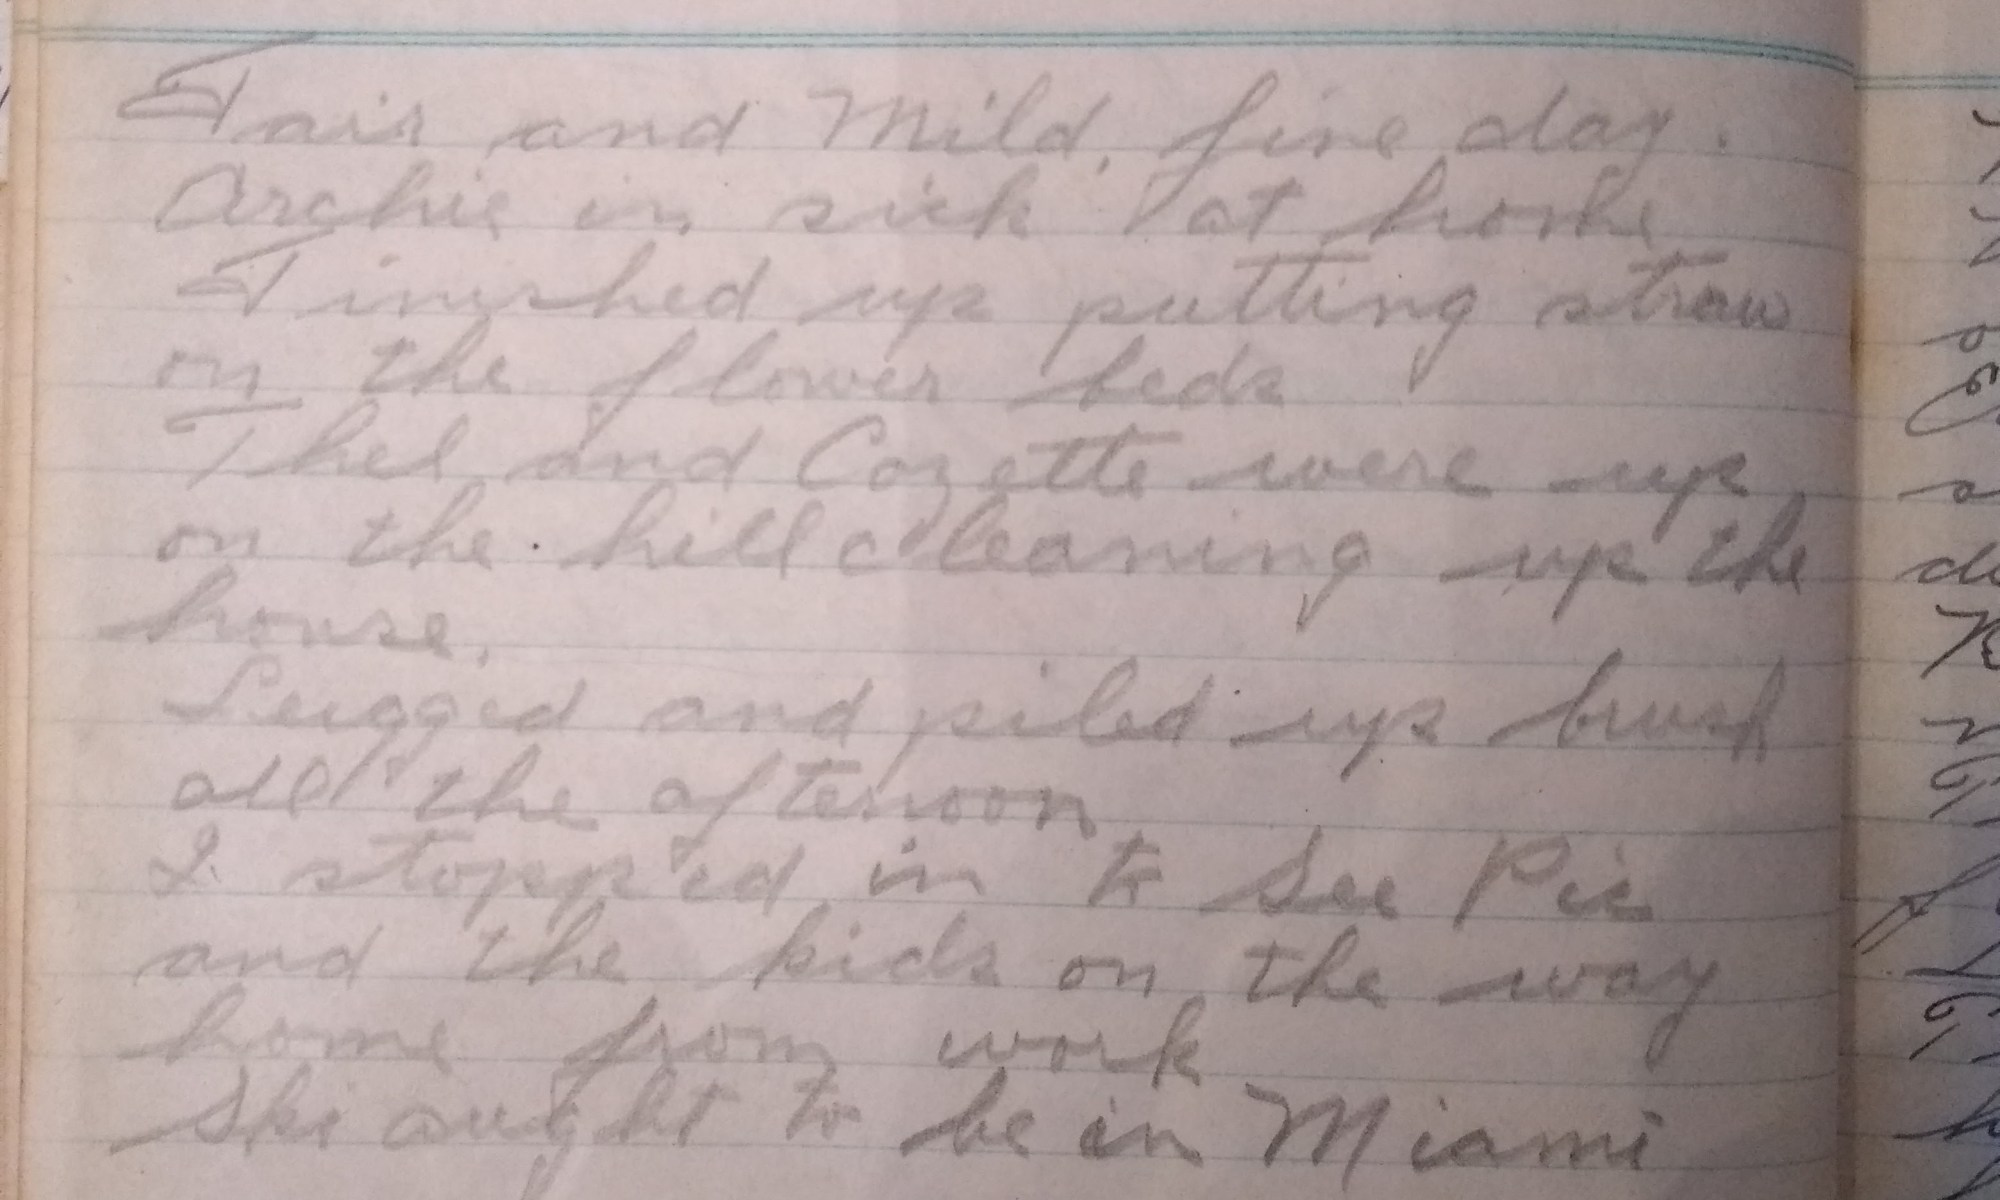 Fair and Mild, fine day.
Archie in sick at home
Finished up putting straw
on the flower beds
Thel and Cozette were up
on the hill cleaning up the
house.
Lugged and piled up brush
all the afternoon
I stopp'ed in to see Pic
and the kids on the way
home from work
Ski aught to be in Miami